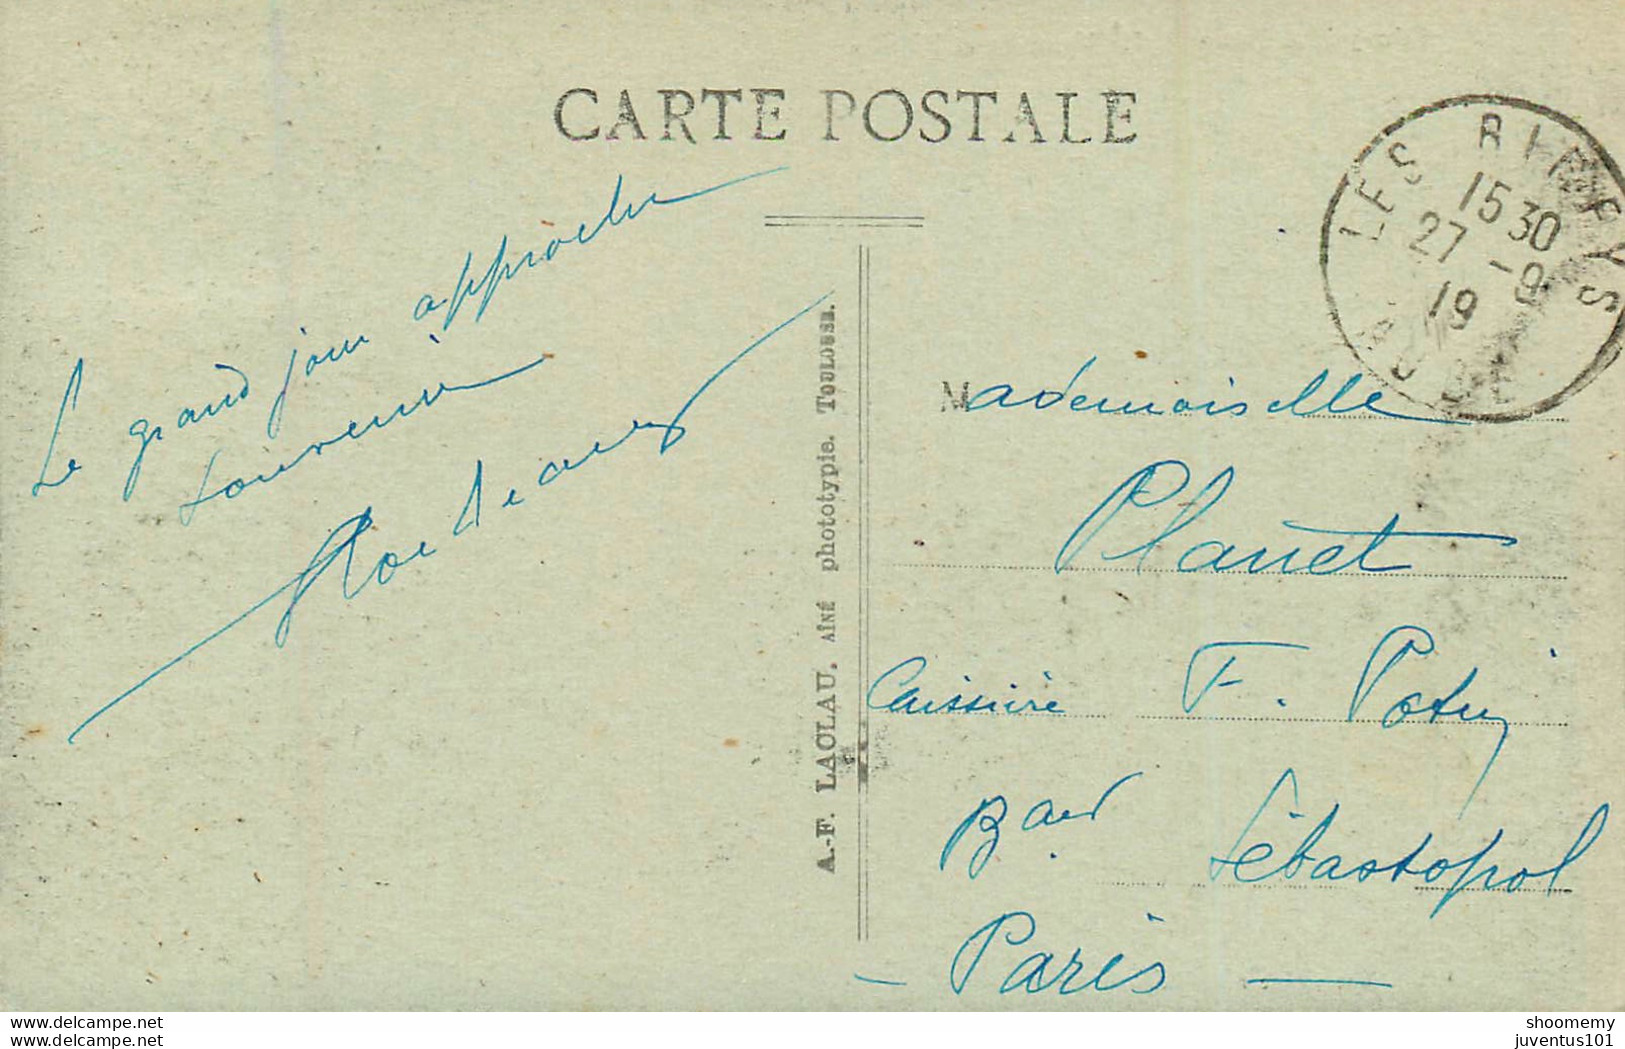 CARTE POSTALE
LES RICEYS
15 30
27 -9
19
AUBE
Le grand jour approche
souvenir
A.-F. LAOLAU, AÎNÉ phototypie. TOULOUSE.
Mademoiselle
Planet
Caissière F. Potin
Bard Sébastopol
- Paris -
www.delcampe.net
www.delcampe.net
shoomemy
juventus101